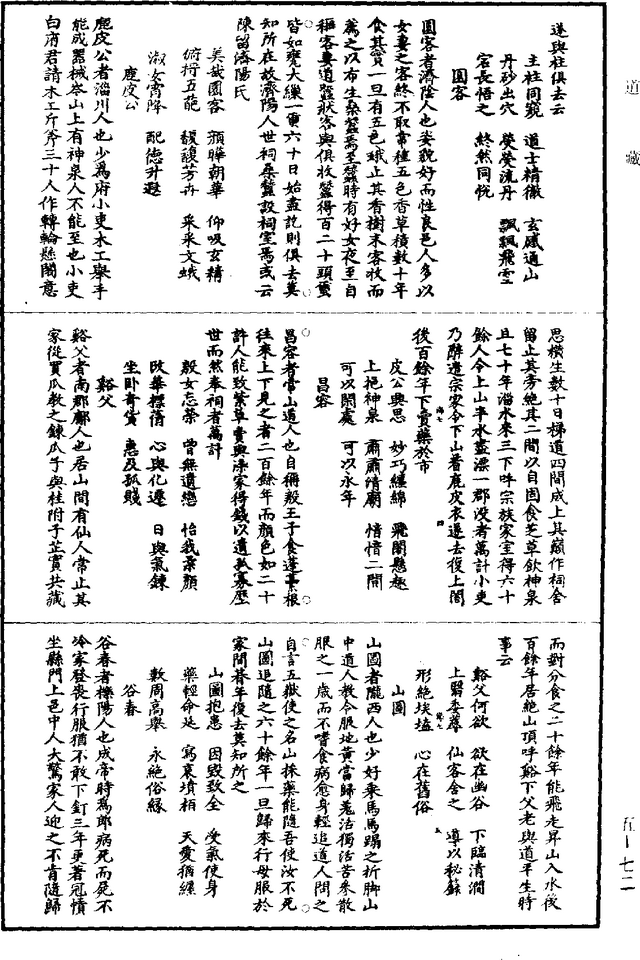 道藏
五—七二
遂與柱俱去云
主柱同窺　道士精徹　玄感通山
丹砂出穴　熒熒流丹　飄飄飛雪
宕長悟之　終然同悅
園客
園客者濟陰人也姿貌好而性良邑人多以
女妻之客終不取常種五色香草積數十年
食其實一旦有五色蛾止其香樹末客收而
薦之以布生桑蠶焉至蠶時有好女夜至自
稱客妻道蠶狀客與俱收蠶得百二十頭蠒
皆如甕大繅一蠒六十日始盡訖則俱去莫
知所在故濟陽人世祠桑蠶設祠室焉或云
陳留濟陽氏
美哉園客　顏曄朝華　仰吸玄精
俯捋五葩　馥馥芳卉　采采文蛾
淑女宵降　配德升遐
鹿皮公
鹿皮公者淄川人也少爲府小吏木工舉手
能成器械岑山上有神泉人不能至也小吏
白府君請木工斤斧三十人作轉輪懸閣意
思橫生數十日梯道四間成上其巔作祠舍
留止其旁絕其二間以自固食芝草飲神泉
且七十年淄水來三下呼宗族家室得六十
餘人令上山半水盡漂一郡没者萬計小吏
乃辭遣宗家令下山著鹿皮衣遂去復上閣
後百餘年下賣藥於市
皮公興思　妙巧纏綿　飛閣懸趣
上挹神泉　肅肅清廟　愔愔二間
可以閑處　可以永年
昌容
昌容者常山道人也自稱殷王子食蓬虆根
往來上下見之者二百餘年而顏色如二十
許人能致紫草賣與染家得錢以遺孤寡歷
世而然奉祠者萬計
殷女忘榮　曾無遺戀　怡我柔顏
改華標蒨　心與化遷　日與氣鍊
坐卧奇貨　惠及孤賤
谿父
谿父者南郡鄘人也居山間有仙人常止其
家從買瓜教之鍊瓜子與桂附子芷實共藏
而對分食之二十餘年能飛走昇山入水後
百餘年居絕山頂呼谿下父老與道平生時
事云
谿父何欲　欲在幽谷　下臨清澗
上翳委蓐　仙客舍之　導以秘籙
形絕埃𡏖　心在舊俗
山圖
山圖者隴西人也少好乘馬馬蹋之折脚山
中道人教令服地黃當歸羌活獨活苦參散
服之一歲而不嗜食病愈身輕追道人問之
自言五嶽使之名山採藥能隨吾使汝不死
山圖追隨之六十餘年一旦歸來行母服於
家間朞年復去莫知所之
山圖抱患　因毀致全　受氣使身
藥輕命延　寫哀墳柏　天愛猶纏
數周高舉　永絕俗緣
谷春
谷春者櫟陽人也成帝時爲郎病死而屍不
冷家發喪行服猶不敢下釘三年更著冠幘
坐縣門上邑中人大驚家人迎之不肯隨歸